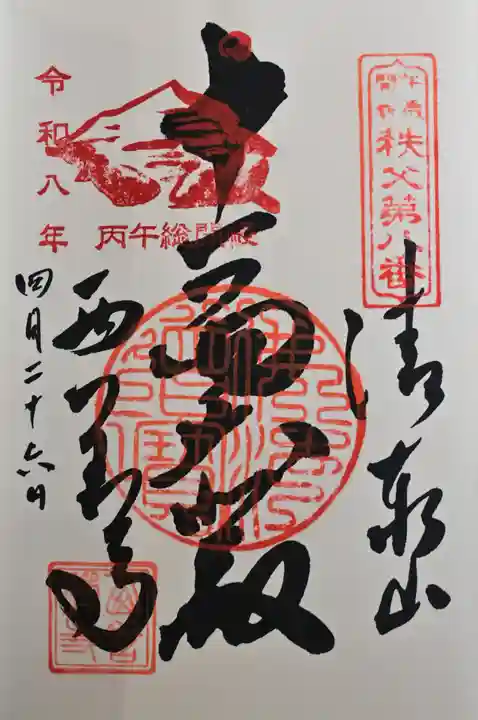 午歳
開帳
秩父第八番
清泰山
十一面大悲殿
西善寺
令和八年
丙午総開帳
四月二十六日